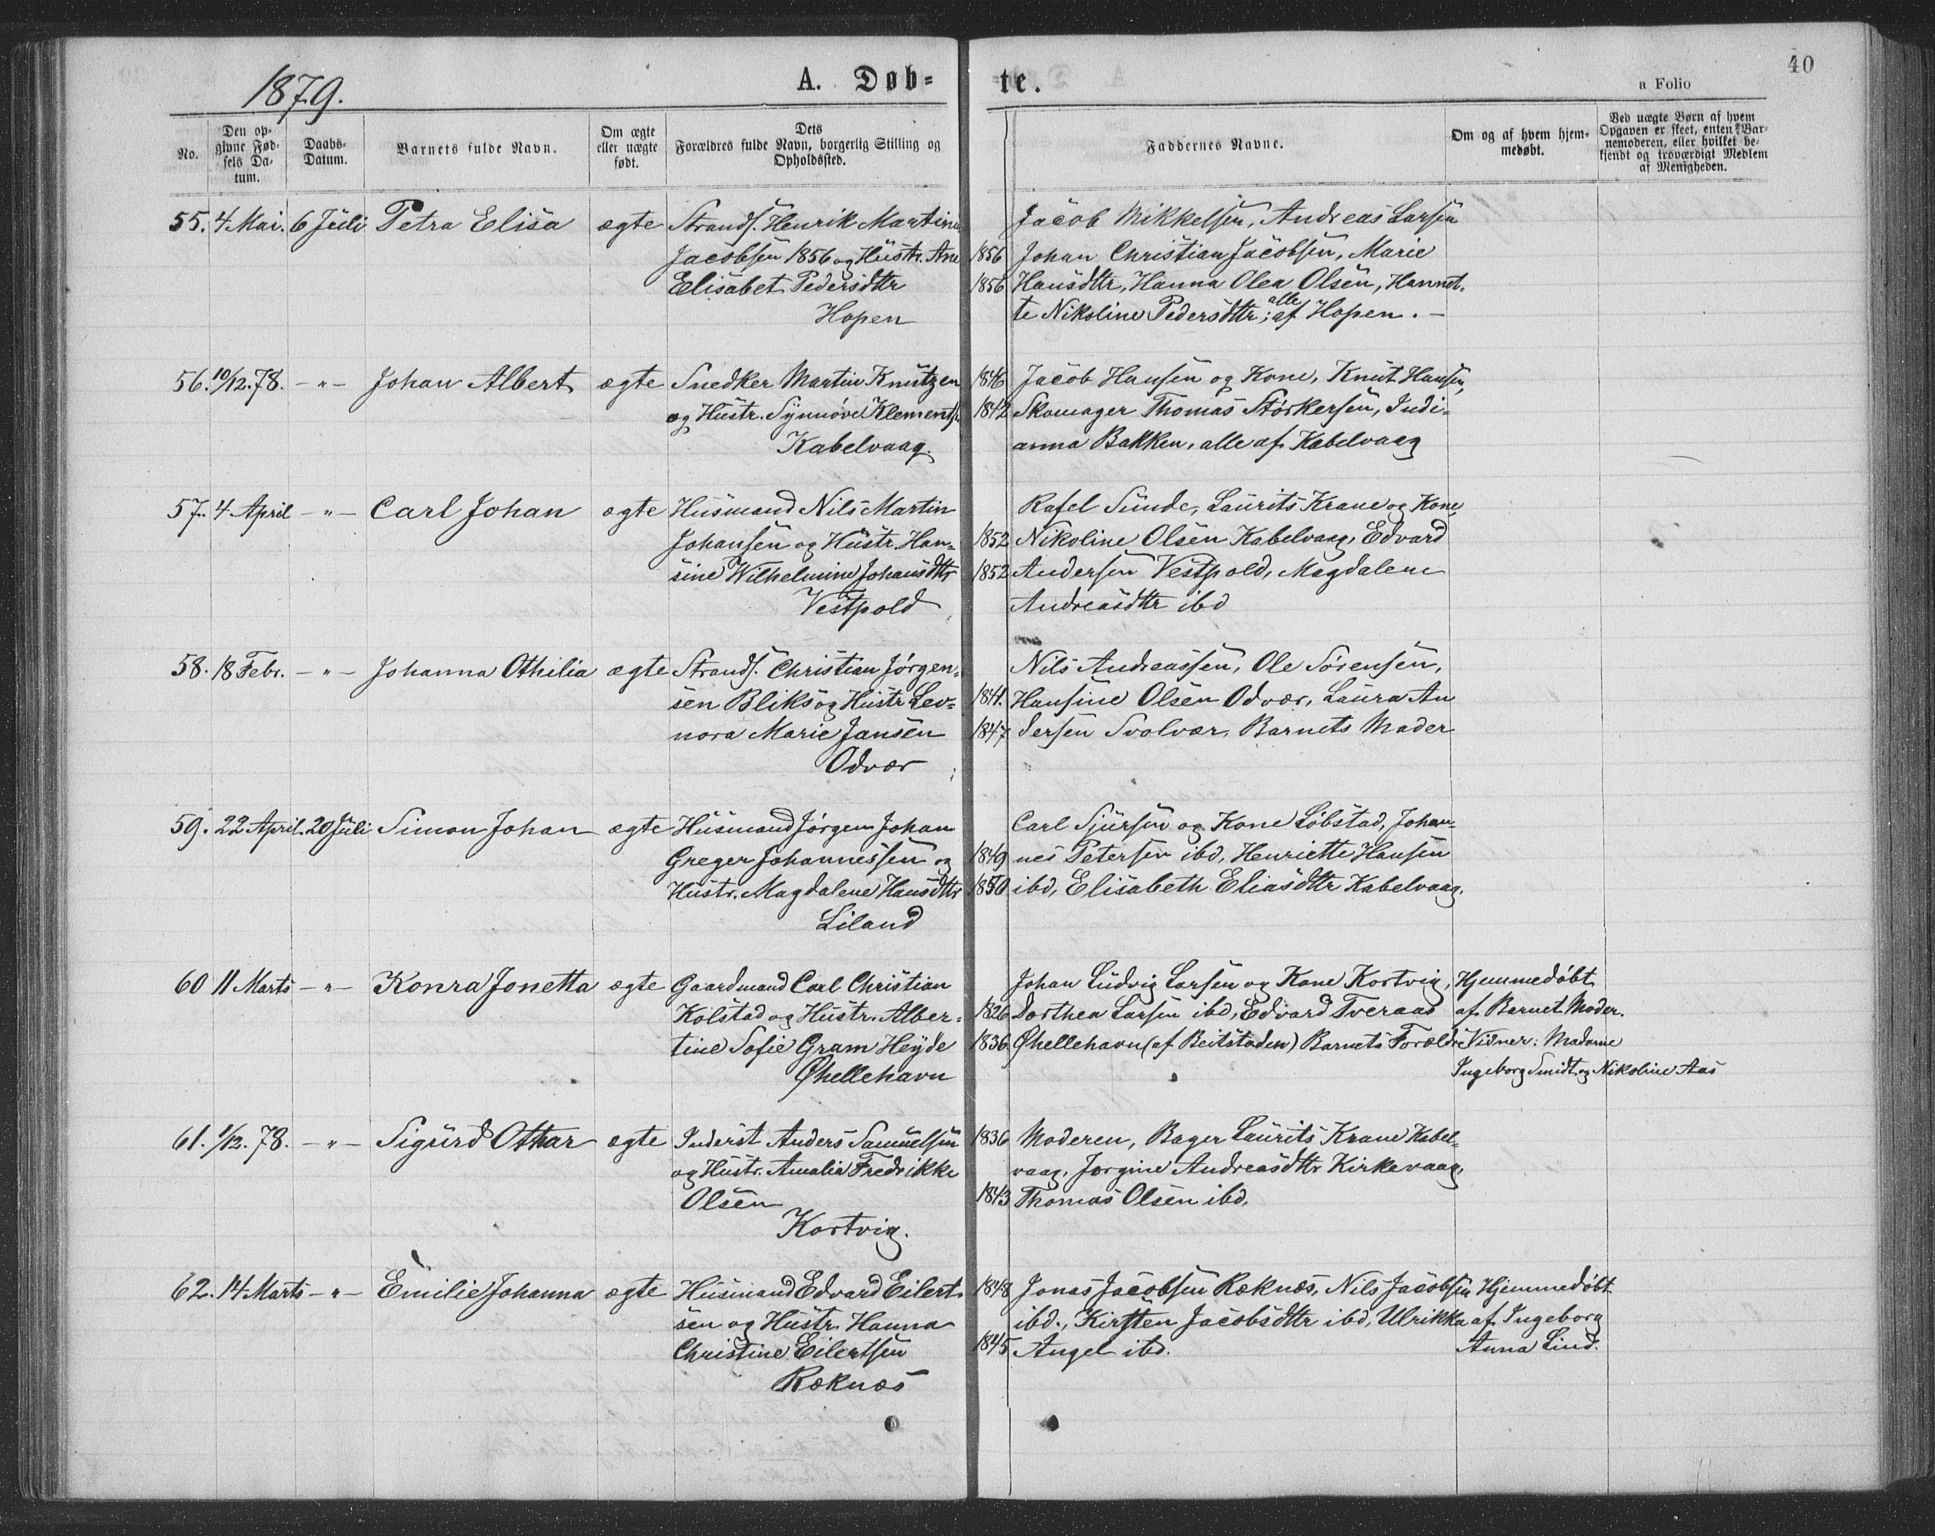 1879.
A. Døb-
te.
40
a Folio
No.
Den op-
givne Fød-
sels Da-
tum.
Daabs-
Datum.
Barnets fulde Navn.
Om ægte
eller uægte
født.
Dets
Forældres fulde Navn, borgerlig Stilling og
Opholdssted.
Faddernes Navne.
Om og af hvem hjem-
medøbt.
Ved uægte Børn af hvem
Opgaven er skeet, enten af Bar-
nemoderen, eller hvilket be-
kjendt og troværdigt Medlem
af Menigheden.
55. 4 Mai. 6 Juli Petra Elisa ægte Strands. Henrik Martinu
Jacobsen 1856 og Hustr. Ane
Elisabet Pedersdttr
Hopen
Jacob Mikkelsen, Andreas Larsen
1856 Johan Christian Jacobsen, Marie
1856 Hansdttr, Hanna Olea Olsen, Hannet-
te Nikoline Pedersdttr; alle af Hopen. —
56. 10/12. 78. -"- Johan Albert ægte Snedker Martin Knutzen
og Hustr. Synnøve Klements.
Kabelvaag.
1846 Jacob Hansen og Kone, Knut Hansen,
1842 Skomager Thomas Størkersen, Indi-
anna Bakken, alle af Kabelvaag
57. 4 April -"- Carl Johan ægte Husmand Nils Martin
Johansen og Hustr. Han-
sine Wilhelmine Johansdttr
Vestpold
Rafel Sunde, Laurits Krane og Kone
1852 Nikoline Olsen Kabelvaag, Edvard
1852 Andersen Vestpold, Magdalene
Andreasdttr ibd
58. 18 Febr. -"- Johanna Othilia ægte Strands. Christian Jørgen-
sen Bliks og Hustr. Lev-
nora Marie Jansen
Odvær
Nils Andreassen, Ole Sørensen,
1841. Hansine Olsen Odvær, Laura An
1847 dersen Svolvær, Barnets Moder
59. 22 April. 20 Juli Simon Johan ægte Husmand Jørgen Johan
Greger Johannessen og
Hustr. Magdalene Hansdttr
Liland
Carl Sjursen og Kone Løbstad, Johan-
1849 nes Petersen ibd, Henriette Hansen
1850 ibd, Elisabeth Eliasdttr Kabelvaag.
60 11 Marts -"- Konra Jonetta ægte Gaardmand Carl Christian
Kolstad og Hustr. Alber-
tine Sofie Gram Heyde
Øhellehavn
Johan Ludvig Larsen og Kone Kortvig,
1826 Dorthea Larsen ibd, Edvard Tveraas
1836 Øhellehavn (af Beitstaden) Barnets Forældre
Hjemmedøbt
af Barnet Moder.
Vidner: Madame
Ingeborg Smidt og Nikoline Aas
61. 1/12. 78. -"- Sigurd Ottar ægte Inderst Anders Samuelsen
og Hustr. Amalia Fredrikke
Olsen
Kortvig.
1836 Moderen, Bager Laurits Krane Kabel-
vaag, Jørgine Andreasdttr Kirkevaag,
1843 Thomas Olsen ibd,
62. 14 Marts -"- Emilie Johanna ægte Husmand Edvard Eilert-
sen og Hustr. Hanna
Christine Eilertsen
Ræknæs
1848 Jonas Jacobsen Ræknæs, Nils Jacobsen
ibd., Kirsten Jacobsdttr ibd, Ulrikka
1845 Angel ibd.
Hjemmedøbt
af Ingeborg
Anna Lind.